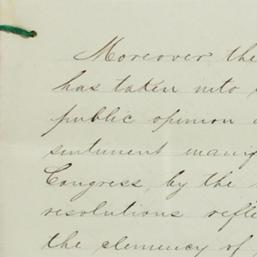 Moreover the
has taken into
public opinion
sentiment
Congress, by the
resolutions
the clemency of